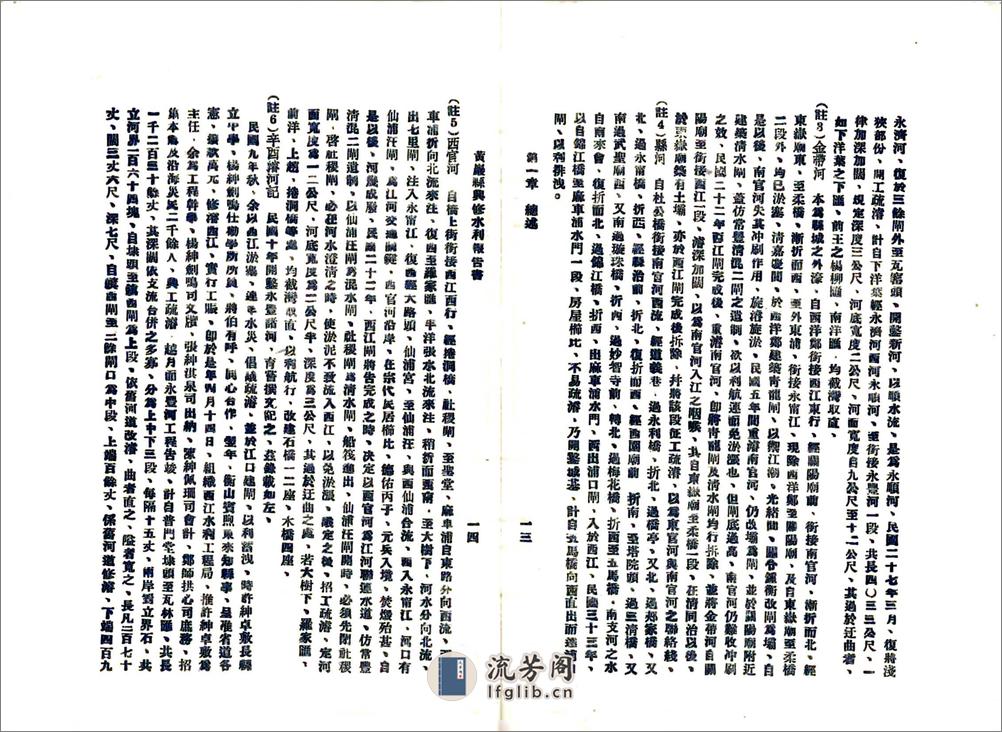 永濟河、復於三餘閘外至瓦窰頭、開鑿新河、以順水流、是爲永順河、民國二十七年三月、復將淺
狹部份、開工疏濬、計自下洋葉經永濟河西河永順河、至銜接永豐河一段、共長四〇三三公尺、一
律加深加闊、規定深度三公尺、河底寬度二公尺、河面寬度自九公尺至十二公尺、其過於迂曲者、
如下洋葉之下匯、前王之楊柳匯、南洋匯、均截灣取直、
(註3)金帶河 本爲縣城之外濠、自西洋鄭銜接西江東行、經關陽廟前、銜接南官河、漸折而北、經
東嶽廟東、至柔橋、漸折而西、至外東浦、銜接永甯江、現除西洋鄭至關陽廟、及自東嶽廟至柔橋
二段外、均已淤塞、清嘉慶間、於西洋鄭建築青龍閘、以觀江潮、光緒間、縣令鍾衡改閘爲壩、自
是以後、南官河失其冲刷作用、旋濬旋淤、民國五年間重濬南官河、仍改壩爲閘、並於關陽廟附近
建築清水閘、蓋仿常豐清混二閘之遺制、欲以利航運而免淤漲也、但閘底過高、南官河仍難收冲刷
之效、民國二十二年西江閘完成後、重濬南官河、卽將青龍閘及清水閘均行拆除、並將金帶河自關
陽廟至銜接西江一段、濬深加闊、以爲南官河入江之咽喉、其自東嶽廟至柔橋一段、在清同治以後、
於東嶽廟築有土壩、亦於西江閘完成後拆除、幷將該段征工疏濬、以爲東官河與南官河之聯絡綫、
(註4)縣河 自杜公橋銜接南官河西流、經道義巷、過永利橋、折北、過橋亭、又北、過鄭家橋、又
北、過永甯橋、折西、經縣治前、折北、復折而西、經西園廟前、折南、至塔院頭、過三清橋、又
南過武聖廟西、又南過璇珠橋、折西、過妙智寺前、轉北、過梅花橋、折西至五馬橋、南支河之水
自南來會、復折而北、過錦江橋、折西、出麻車浦水門、西出浦口閘、入於西江、民國三十三年、
以自錦江橋至麻車浦水門一段、房屋備比、不易疏濬、乃開鑿城基、計自五馬橋向西直出而達浦口
閘、以利排洩。
第一章 總述
一三
黃巖縣興修水利報告書
一四
(註5)西官河 自橋上街銜接西江西行、經捲洞橋、社稷閘、至聖堂、麻車浦自東路分向西流、
車浦折向北流來注、復西至羅家匯、半洋張水北流來注、稍折而西南、至大樹下、河水分向北流、
出七里河、注入永甯江、復西經大路頭、仙浦宮、至仙浦汪、與西仙浦合流、西入永甯江、河口有
仙浦汪閘、爲江河交通關鍵、西官河沿岸、在宗代民居備比、德佑丙子、元兵入境、焚燬殆甚、自
是以後、河幾成廢、民國二十二年、西江閘將告完成之時、決定以西官河爲江河聯運水道、仿常豐
清混二閘遺制、以仙浦汪閘爲混水閘、社稷閘爲清水閘、船筏進出、仙浦汪閘開時、必須先閉社稷
閘、啓社稷閘、必在河水澄清之時、使淤泥不致流入西江、以免淤漲、議定之後、招工疏濬、定河
面寬度爲一二公尺、河底寬度爲二公尺半、深度爲三公尺、其過於迂曲之處、若大樹下、羅家匯、
前洋、上趙、捲洞橋等處、均截灣取直、以利航行、改建石橋一二座、木橋四座。
(註6)辛酉濬河記 民國十年開鑿永豐諸河、育菁撰文記之、茲錄載如左、
民國九年秋、余以西江淤塞、連年水災、倡議疏濬、並於江口建閘、以利蓄洩、時許紳卓敷長縣
立中學、楊紳劍鳴任勸學所所員、將伯有呼、同心合作、翌年、衡山賓熙康來知縣事、呈准省道各
憲、撥款萬元、修濬西江、實行工賑、卽於是年四月十四日、組織西江水利工程局、推許紳卓敷爲
主任、余爲工程幹學、楊紳劍鳴司文牘、張紳淇泉司出納、陳紳佩珊司會計、鄭師拱心司庶務、招
集本縣及沿海災民二千餘人、興工疏濬、越月而永豐河工程告竣、計自普門堂埭頭至瓦林匯、共長
一千二百三十餘丈、其深闊依支流合併之多寡、分爲上中下三段、每隔十五丈、兩岸爲立界石、共
立河界二百六十四塊、自埭頭至鎮西閘爲上段、依舊河道改濬、曲者直之、隘者寬之、長凡三百七十
丈、闊三丈六尺、深七尺、自鎮西閘至二餘閘口爲中段、上端百餘丈、係舊河道修濬、下端四百九
流芳阁
lfglib.cn